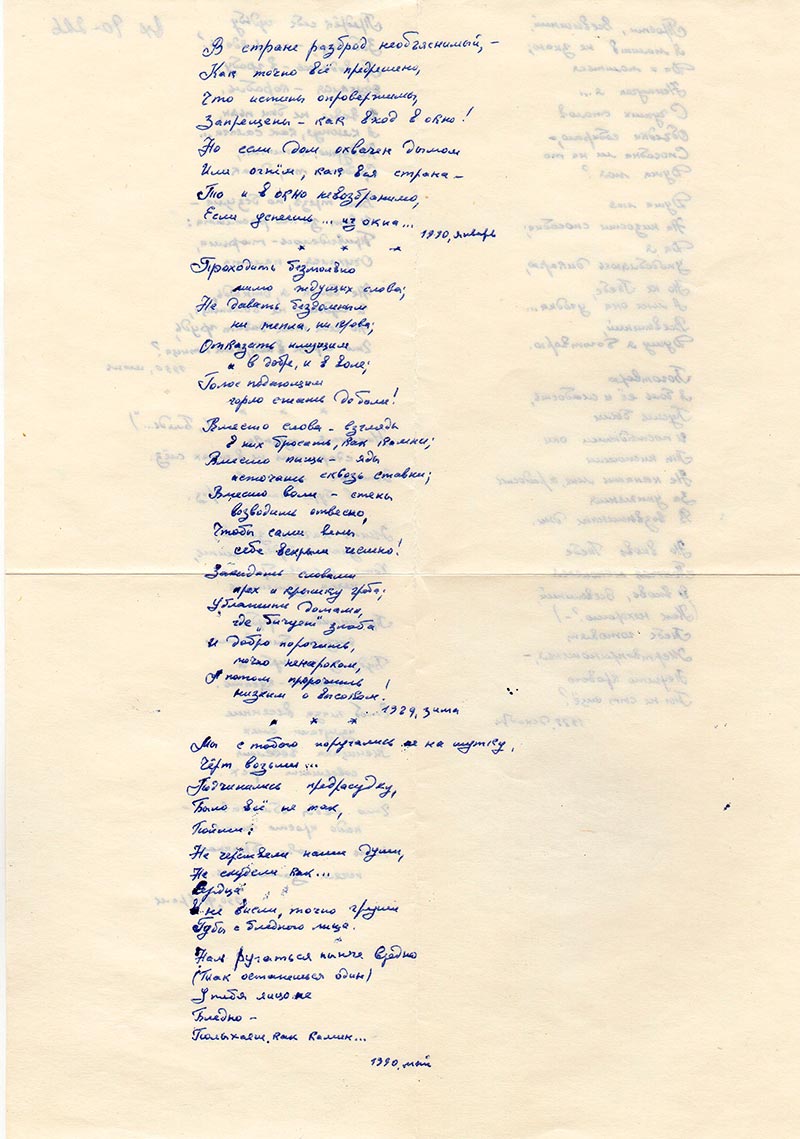 В стране разброд необъяснимый, –
Как точно всё предрешено,
Что истины опровержимы,
Запрещены – как вход в окно!
Но если дом охвачен дымом
Или огнём, как вся страна –
То и в окно невозбранимо,
Если успеешь... из окна...
1990, январь
* * *
Проходить безмолвно
мимо ждущих слова;
Не давать бездомным
ни тепла, ни крова;
Отказать ищущим
и в добре, и в воле;
Голос подающим
горло сжать до боли!
Вместо слова – взгляды
в них бросать, как камни;
Вместо пищи – яды
источать сквозь ставни;
Вместо воли – стены
возводить отвесно,
Чтобы сами вены
себе вскрыли честно!
Закидать словами
прах и крышку гроба;
Ублажить домами,
где "бичует" злоба
И добро порочить,
точно ненароком,
А потом пророчить
низким о высоком!
1989, зима
* * *
Мы с тобою поругались не на шутку,
Чёрт возьми...
Подчинились предрассудку,
Было всё не так,
Пойми:
Не черствели наши души,
Не скудели как...
Сердца
И не висли, точно груши
Губы с бледного лица.
Нам ругаться нынче вредно
(Так останешься один)
У тебя лицо не
Бледно –
Полыхает, как камин...
1990, май